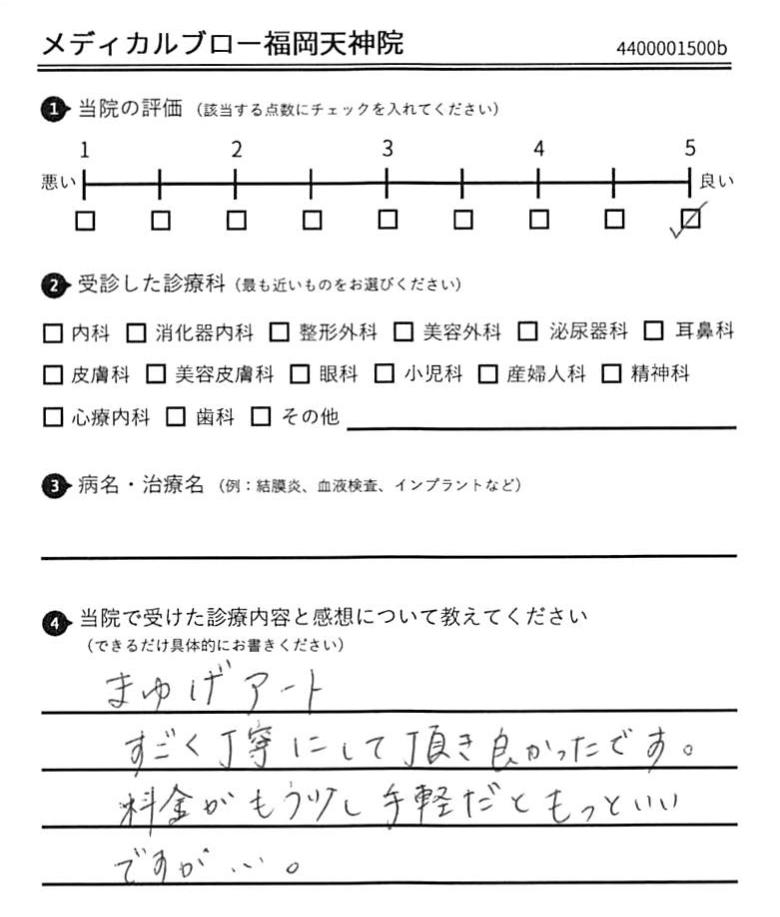 メディカルブロー福岡天神院
4400001500b
1 当院の評価（該当する点数にチェックを入れてください）
1 2 3 4 5
悪い 良い
2 受診した診療科（最も近いものをお選びください）
内科 消化器内科 整形外科 美容外科 泌尿器科 耳鼻科
皮膚科 美容皮膚科 眼科 小児科 産婦人科 精神科
心療内科 歯科 その他
3 病名・治療名（例：結膜炎、血液検査、インプラントなど）
4 当院で受けた診療内容と感想について教えてください
（できるだけ具体的にお書きください）
まゆげアート
すごく丁寧にして頂き良かったです。
料金がもう少し手軽だともっといい
ですが…。